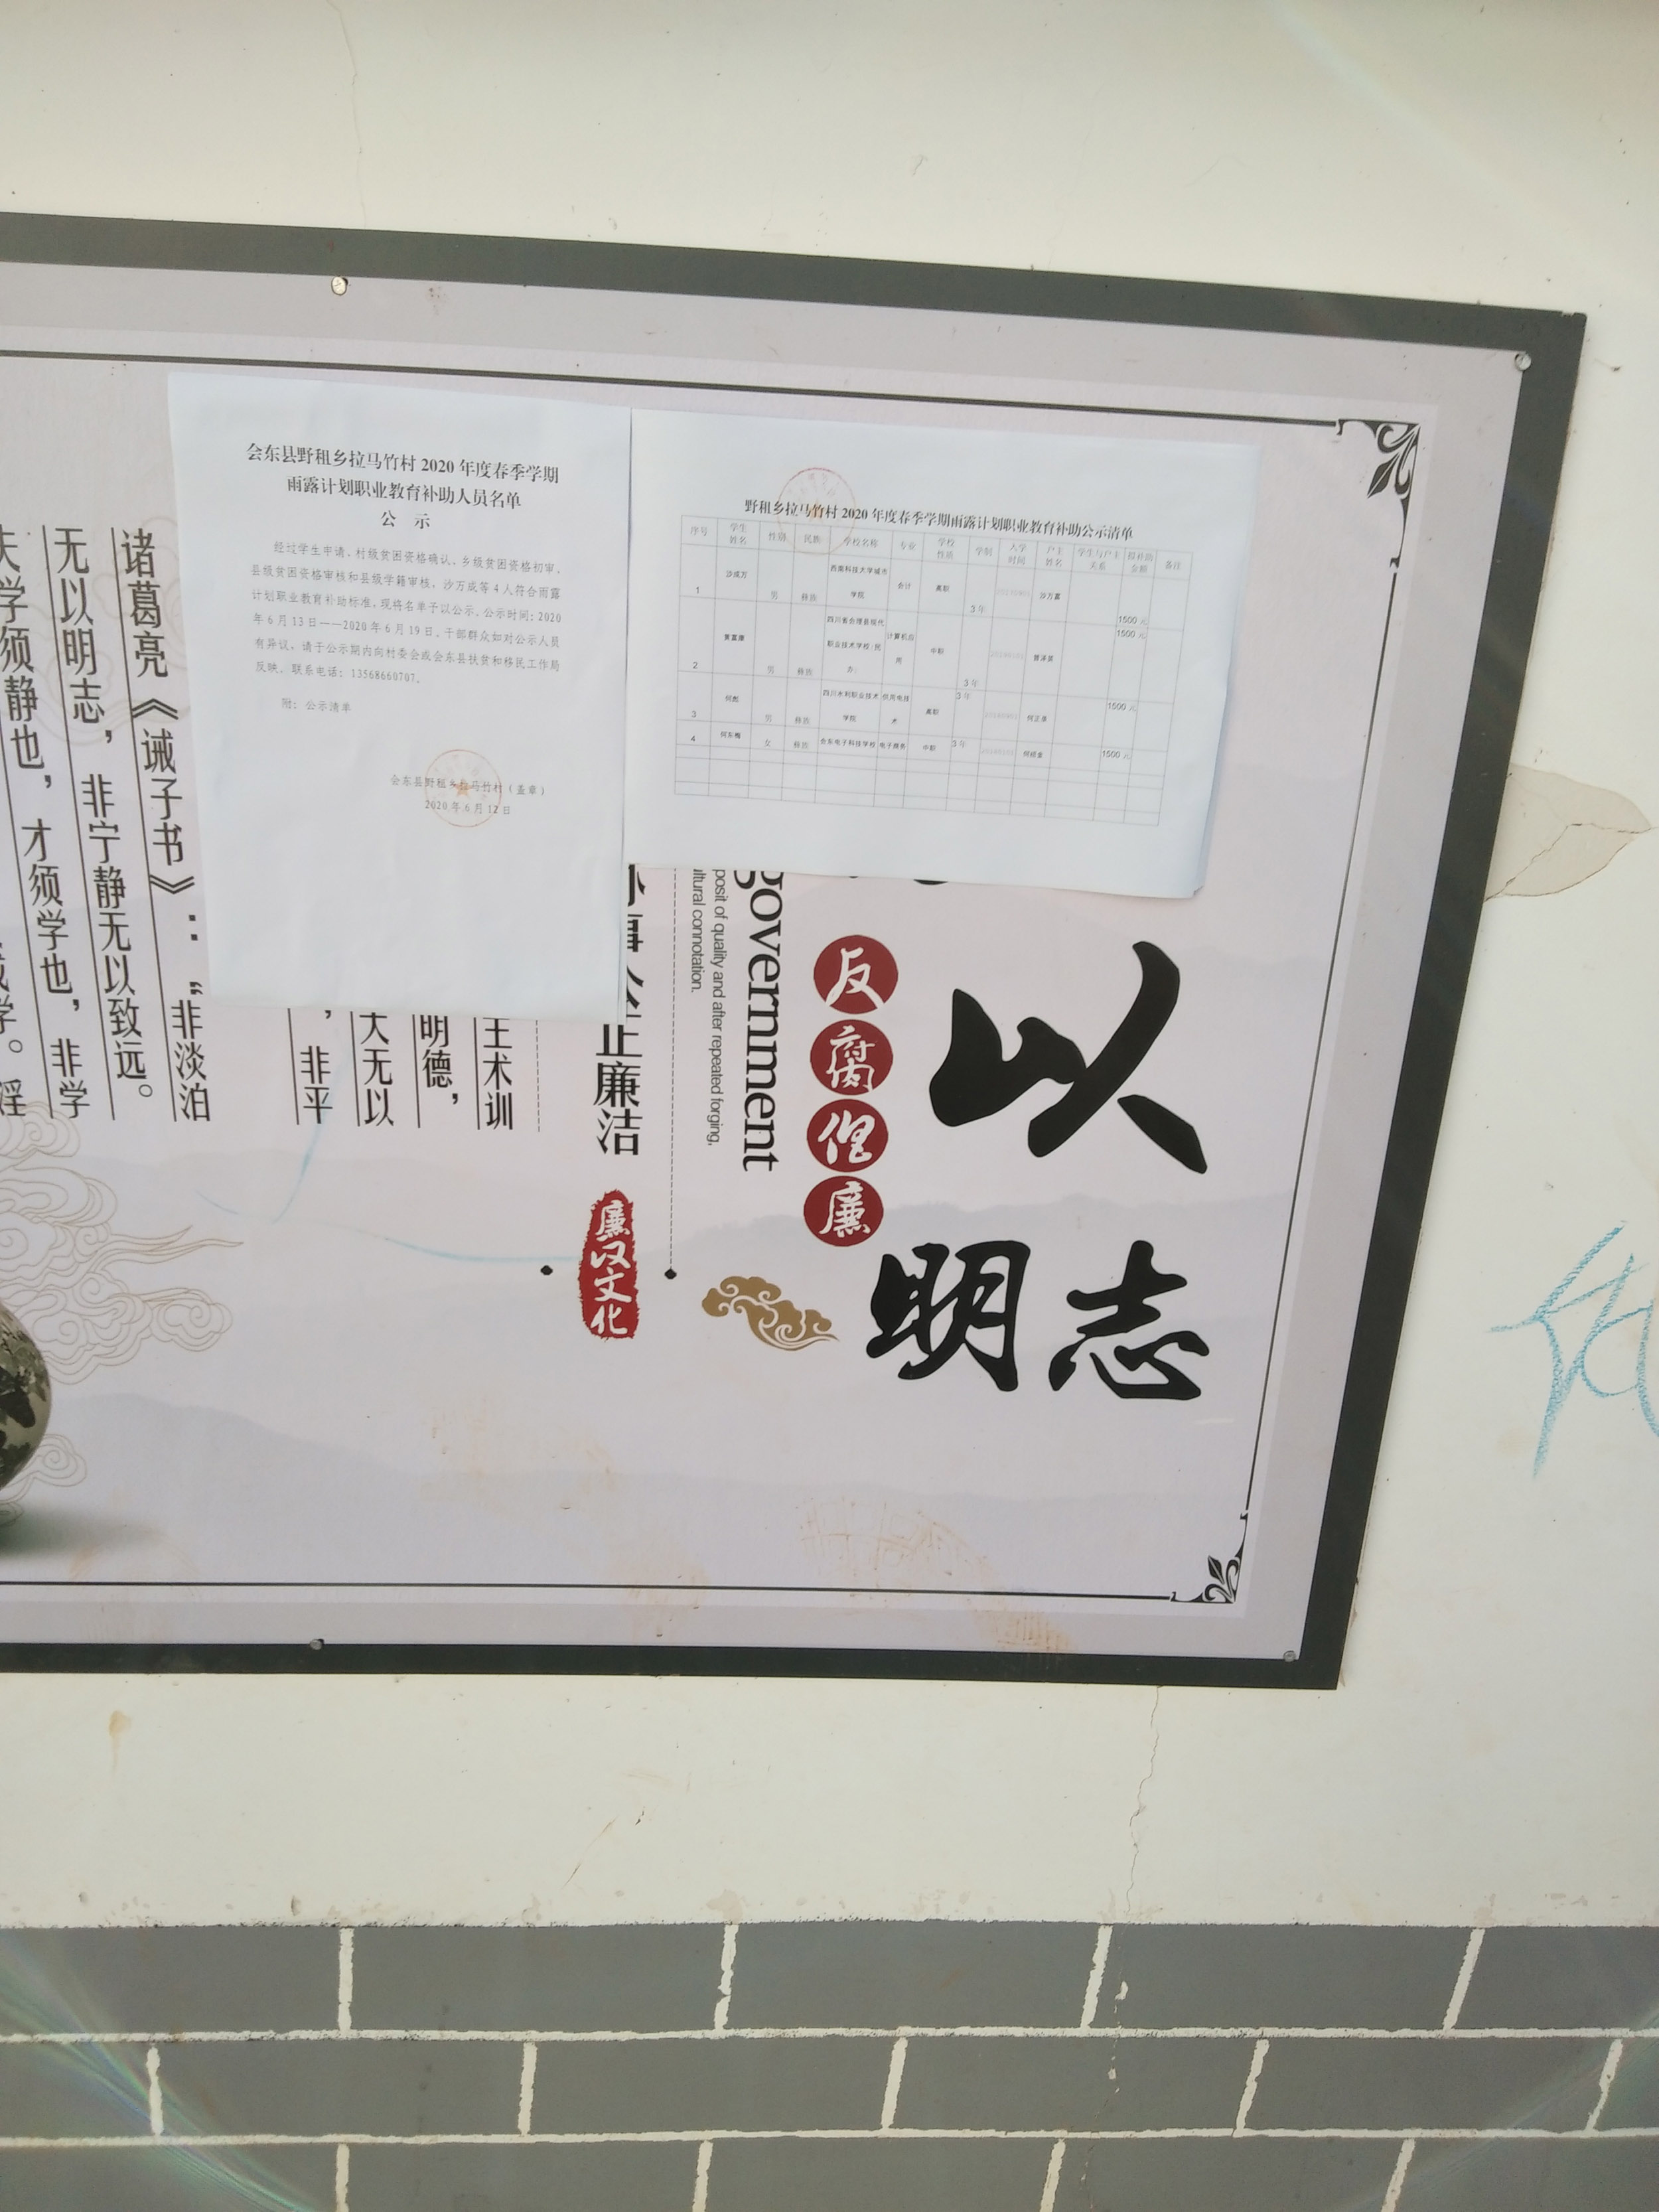 会东县野租乡拉马竹村 2020 年度春季学期
雨露计划职业教育补助人员名单
公 示
经过学生申请、村级贫困资格确认、乡级贫困资格初审、
县级贫困资格审核和县级学籍审核，沙万成等 4 人符合雨露
计划职业教育补助标准。现将名单予以公示，公示时间：2020
年 6 月 13 日——2020 年 6 月 19 日，干部群众如对公示人员
有异议，请于公示期内向村委会或会东县扶贫和移民工作局
反映。联系电话：13568660707。
附：公示清单
会东县野租乡拉马竹村（盖章）
2020 年 6 月 12 日
野租乡拉马竹村 2020 年度春季学期雨露计划职业教育补助公示清单
序号 学生姓名 性别 民族 学校名称 专业 学校性质 学制 入学时间 户主姓名 学生与户主关系 拟补助金额 备注
1 沙成万 男 彝族 西南科技大学城市学院 会计 高职 3 年 沙万富 1500 元
2 男 彝族 四川省会理县现代职业技术学校(民办) 计算机应用 中职 3 年 1500 元
3 何彪 男 彝族 四川水利职业技术学院 供用电技术 高职 3 年 何正章 1500 元
4 何东梅 女 彝族 会东电子科技学校 电子商务 中职 3 年 1500 元
以
明志
反腐倡廉
government
posit of quality and after repeated forging,
ltural connotation.
正廉洁
廉汉文化
王术训
明德，
大无以
，非平
诸葛亮《诫子书》：“非淡泊
无以明志，非宁静无以致远。
夫学须静也，才须学也，非学
学。淫